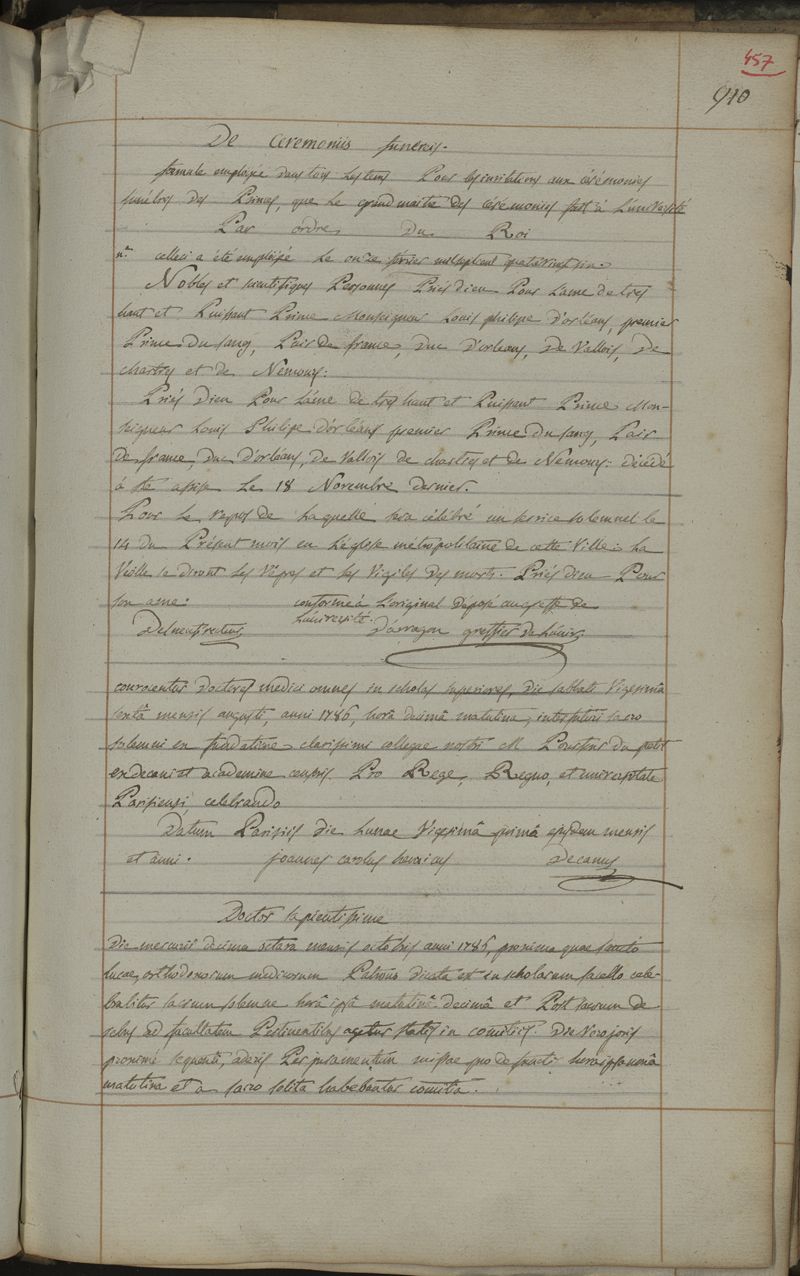 457
910
De Ceremoniis funereis.
formule employée dans tous les tems Pour les invitations aux cérémonies
funébres des Princes, que Le grand maitre des cérémonies fait à L'université
Par ordre du Roi
n.ª celle ci a été employée Le onze février
Nobles et scientifiques Personnes Priés dieu Pour L'ame de tres
haut et Puissant Prince Monseigneur Louis philippe D'orléans, premier
Prince Du sang, Pair de france, duc D'orleans, De Vallois, De
chartres et de Nemours:
Priés Dieu Pour L'ame de tres haut et Puissant Prince Mon-
seigneur Louis Philipe D'orléans premier Prince Du sang, Pair
De france, Duc D'orléans, de Vallois de chartres et de Nemours: décédé
à ste assise Le 18 Novembre dernier.
Pour Le repos de Laquelle sera célébré un service solemnel le
14 du Présent mois en L'église métropolitaine de cette Ville: La
Veille se diront Les Vêpres et Les Vigiles Des morts. Priés dieu Pour
son ame. conforme à L'original Déposé au greffe de
L'université.
Delneuf recteur D'arragon greffier de L'univ.
convocentur doctores medici omnes in scholas superiores, die sabbati Vigesimâ
sextâ mensis augusti, anni 1786, horâ decimâ matutina, interfuturi sacro
solemni ex fundatione clarissimi collegae nostri M Pourfour du petit
exdecani et academiae censoris Pro Rege, Regno, et universitate
Parisiensi, celebrando
Datum Parisiis die Lunae Vigesimâ primâ ejusdem mensis
et anni. joannes carolus henricus Decanus
Doctor sapientissime
Die mercurii decima octava mensis octobris anni 1786, proxima quae sancto
Lucae, orthodoxorum medicorum Patrono dicata est in scholarum sacello cele-
brabitur sacrum solemne horâ ipsâ matutinâ decimâ et Post sacrum de
rebus ad facultatem Pertinentibus agetur in comitiis. Die Vero jovis
proximi sequenti, aderis Per juramentum missae pro defuncti hora ipsa nonâ
matutina et a sacro solita habebuntur comitia.